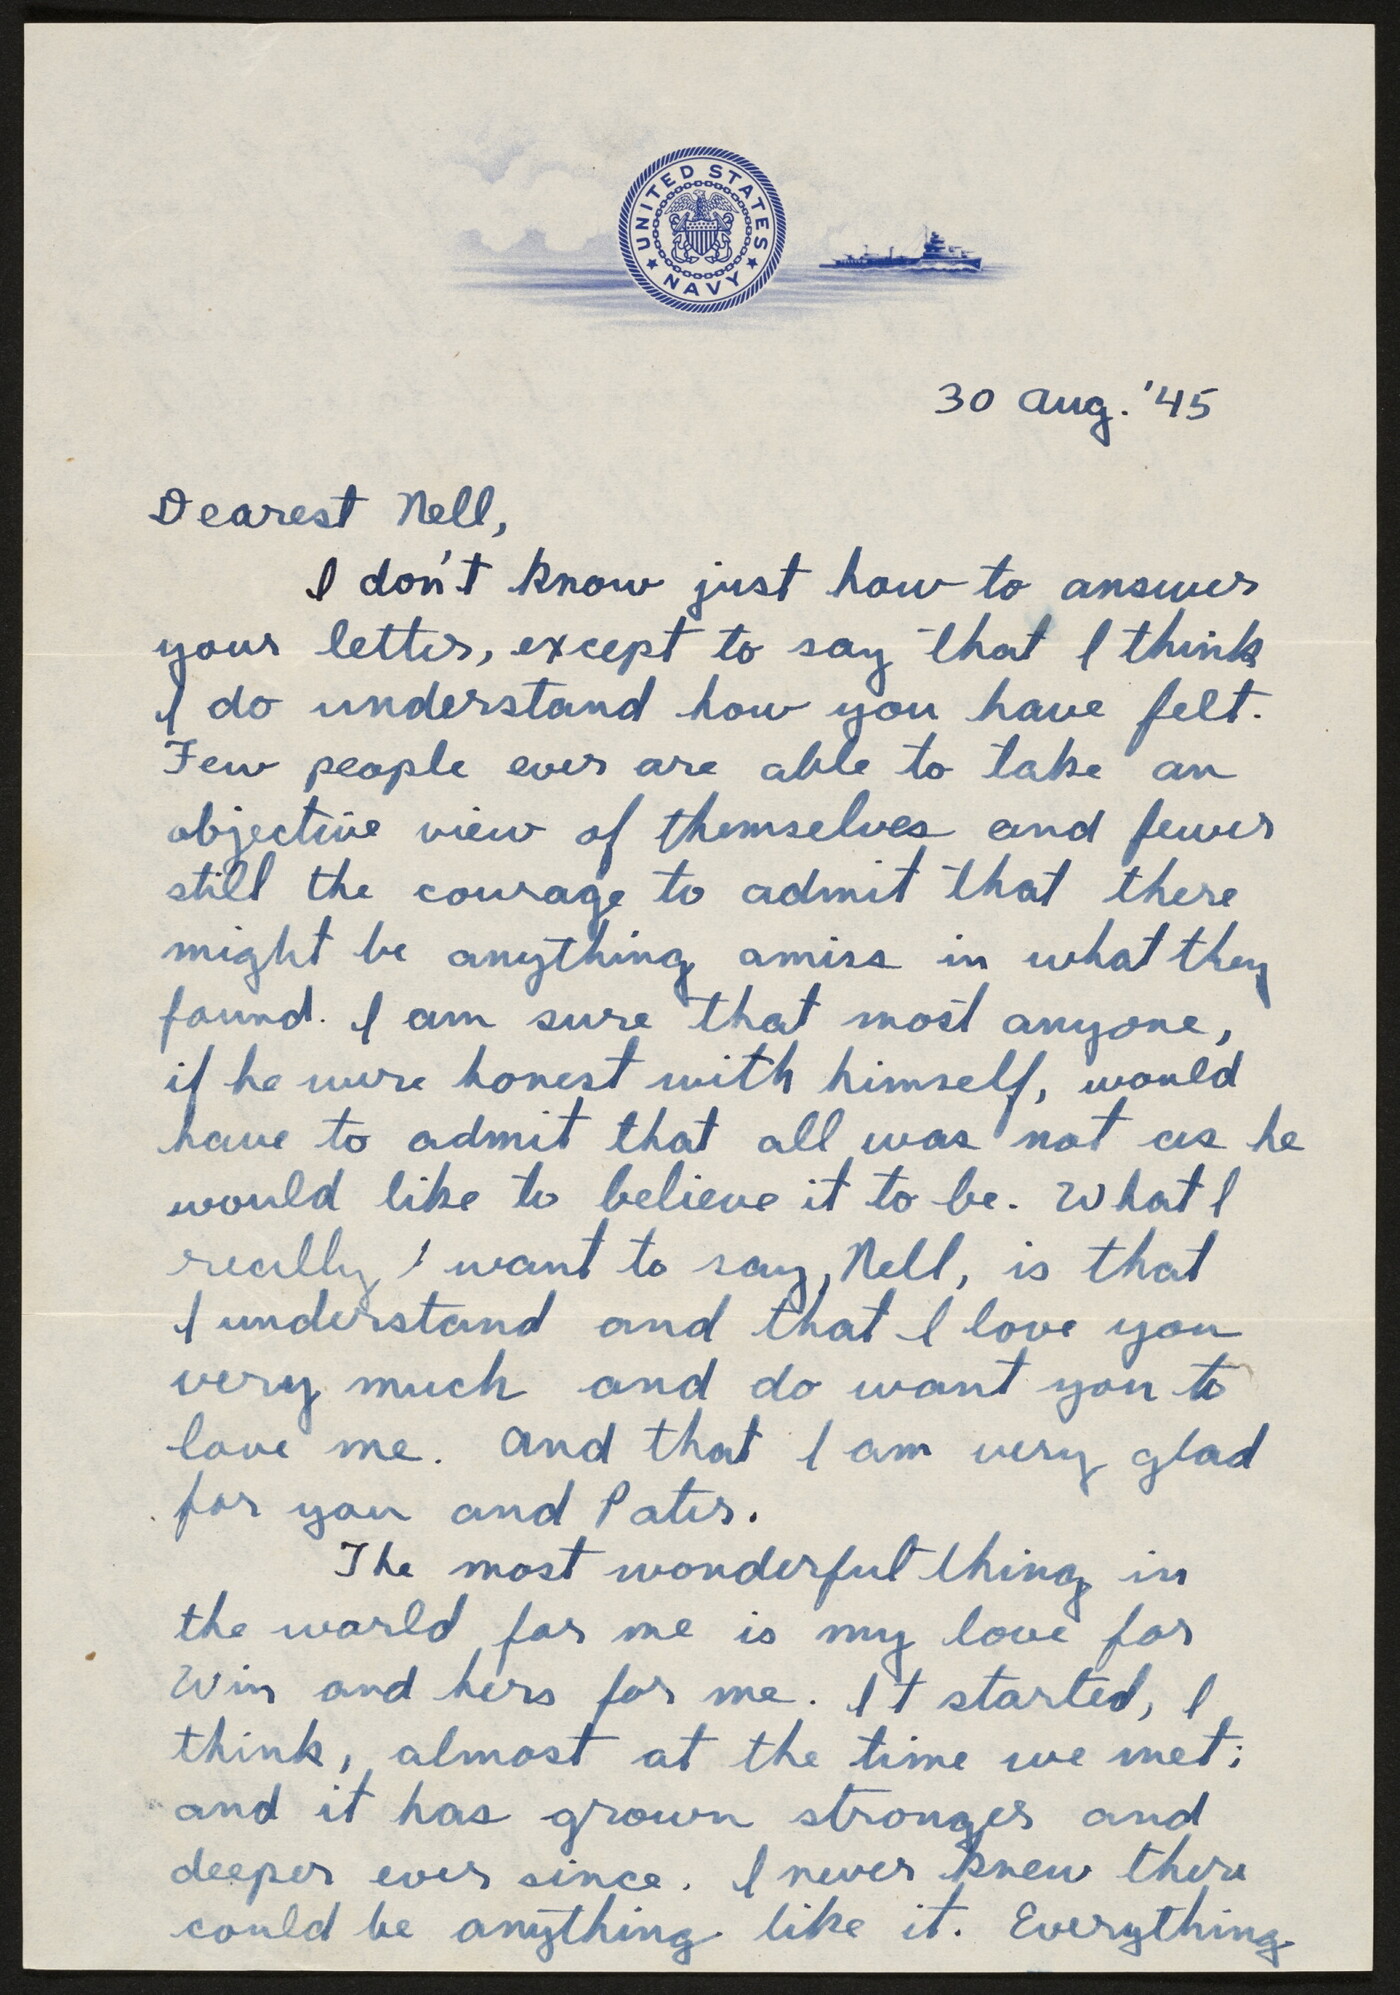 UNITED STATES
NAVY
30 Aug. '45
Dearest Nell,
I don't know just how to answer
your letter, except to say that I think
I do understand how you have felt.
Few people ever are able to take an
objective view of themselves and fewer
still the courage to admit that there
might be anything amiss in what they
found. I am sure that most anyone,
if he were honest with himself, would
have to admit that all was not as he
would like to believe it to be. What I
really I want to say, Nell, is that
I understand and that I love you
very much and do want you to
love me. And that I am very glad
for you and Pater.
The most wonderful thing in
the world for me is my love for
Win and hers for me. It started, I
think, almost at the time we met;
and it has grown stronger and
deeper ever since. I never knew there
could be anything like it. Everything